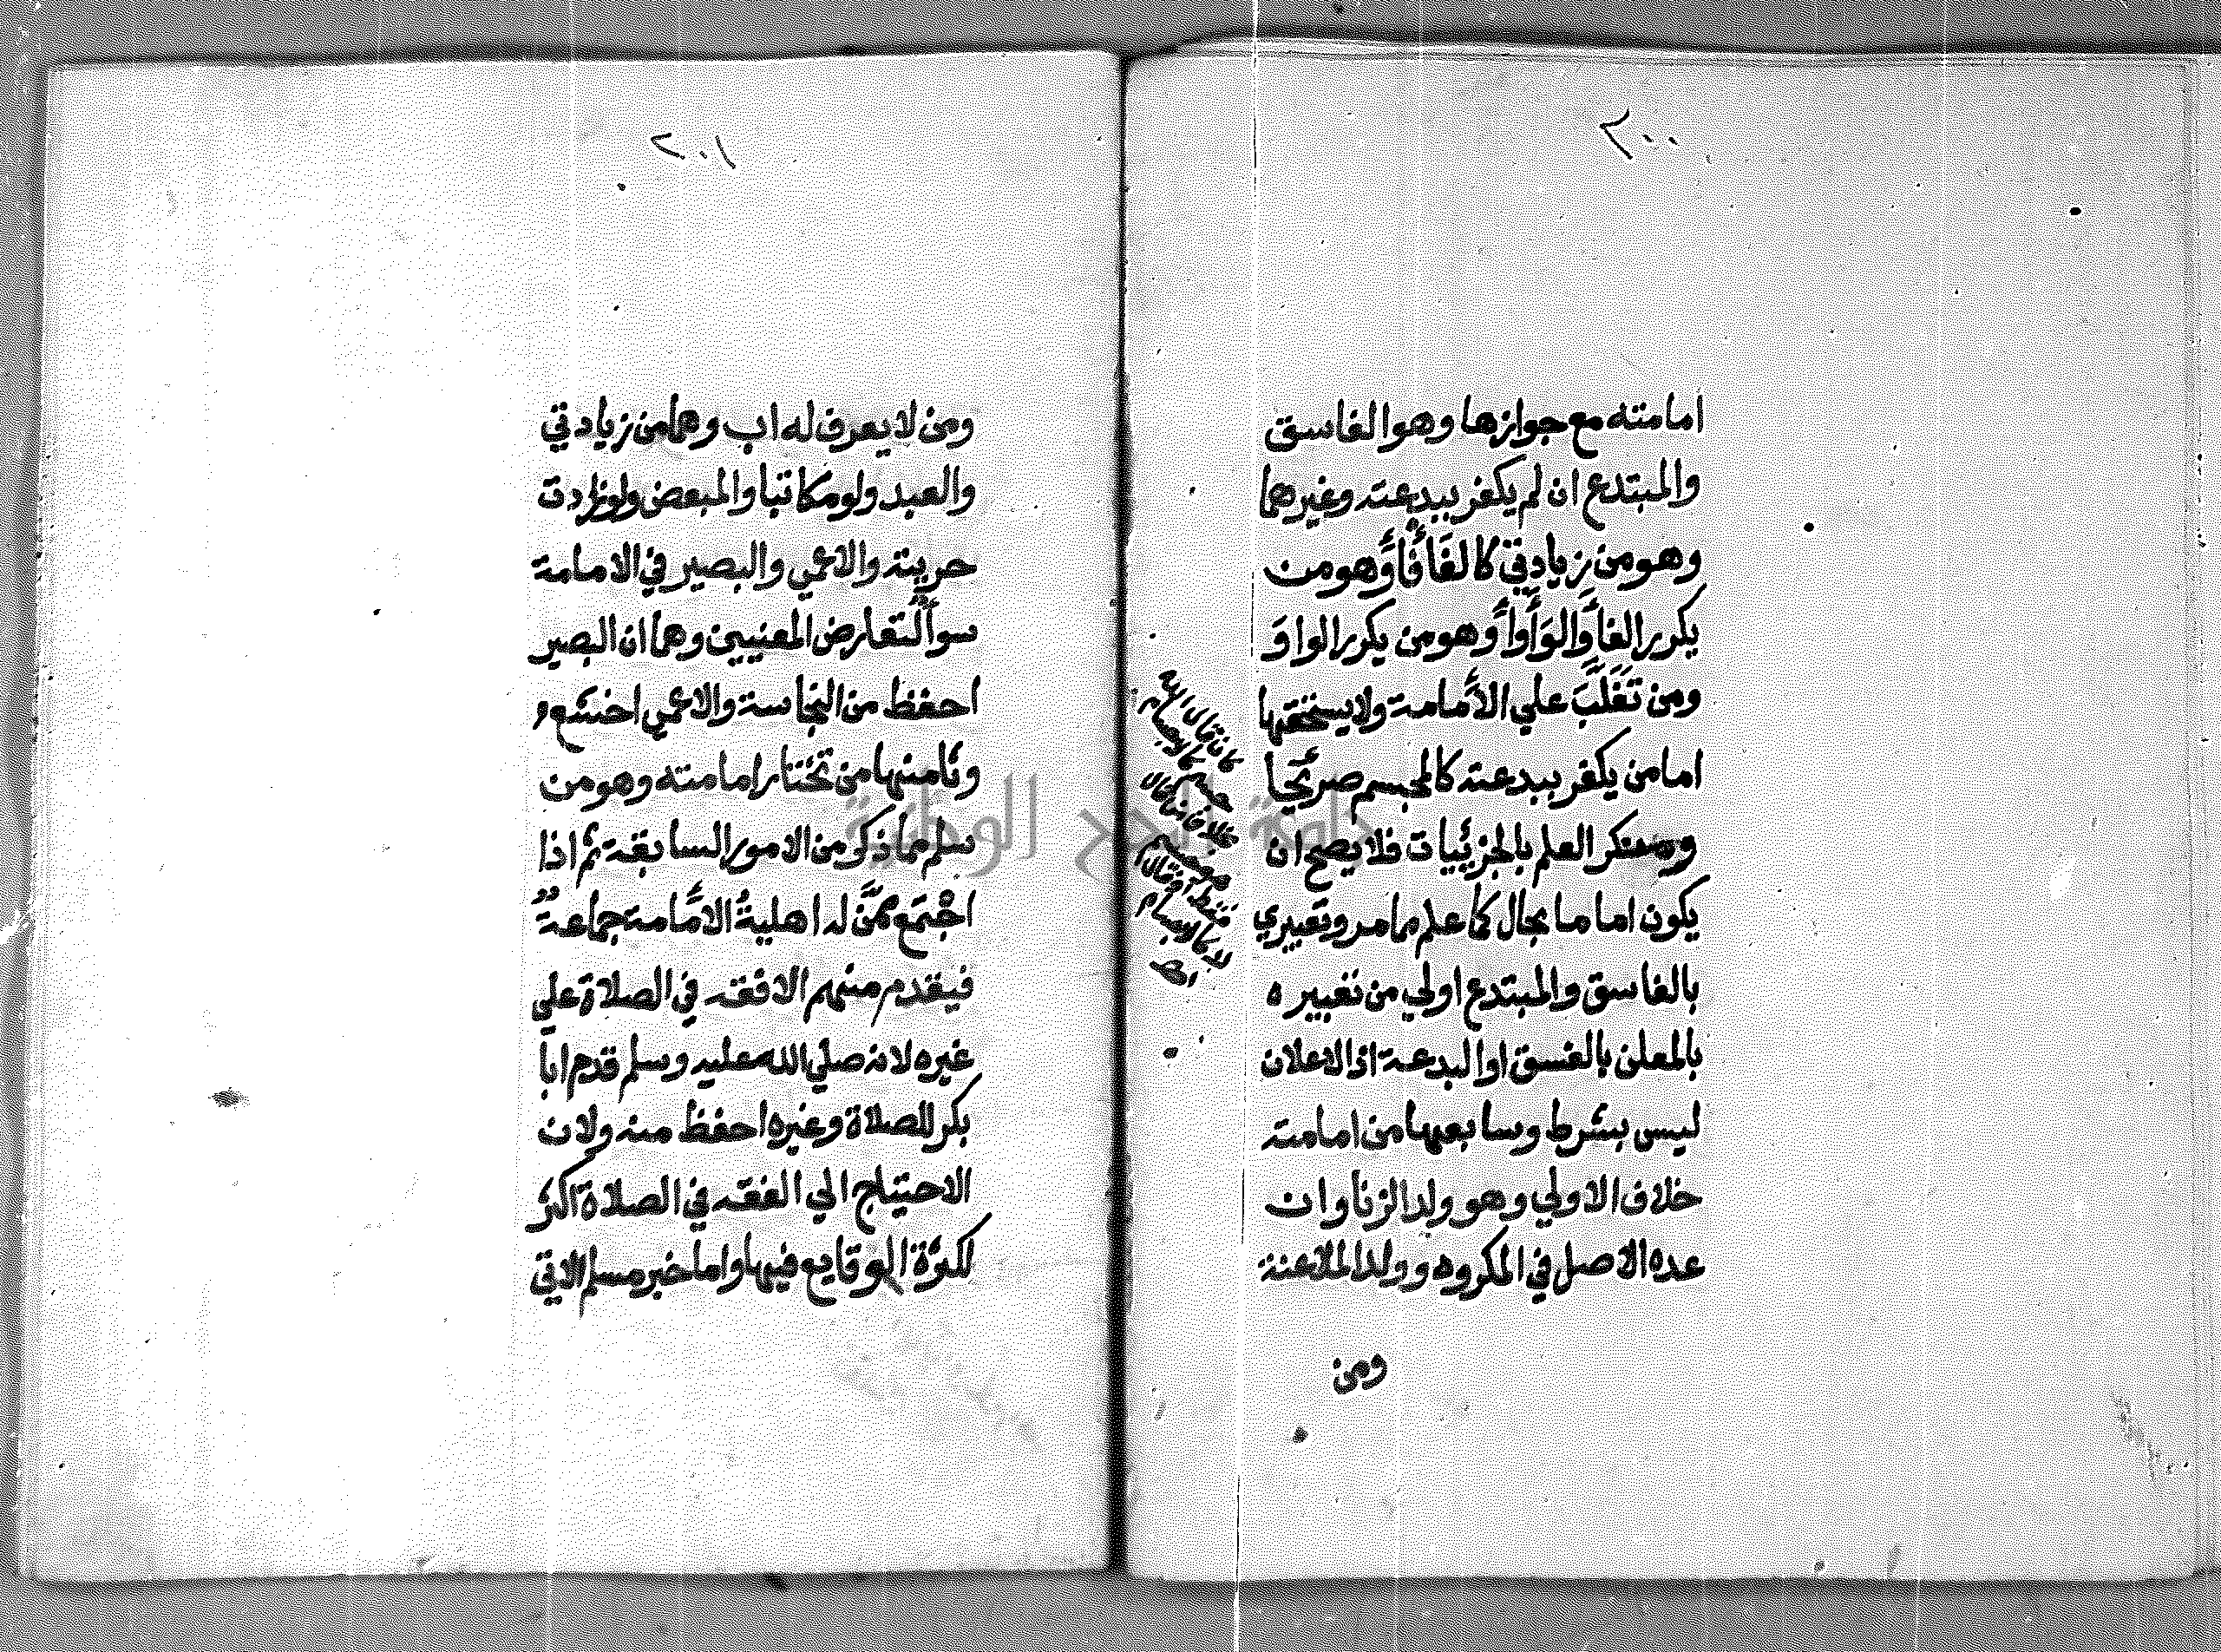 ٢٠٠
امامته مع جوازها وهو الفاسق
والمبتدع ان لم يكفر ببدعته وغيرهما
وهو من زيادتي كالفَأفَأ وَهو من
يكرر الفأ وَالوَأوَأ وَهو من يكرر الواوَ
ومن تَغَلَّبَ علي الاِمامة ولا يستحقها
اما من يكفر ببدعته كالمجسم صريحا
ومنكر العلم بالجزئيات فلا يصح ان
يكون اماما بحال كما علم مما مر وتعبيري
بالفاسق والمبتدع اولي من تعبيره
بالمعلن بالفسق او البدعة اذ الاعلان
ليس بشرط وسابعها من امامته
خلاف الاولي وهو ولد الزنا وان
عده الاصل في المكروه وولد الملاعنة
كان قال ان الله
جسم كالاجسام
بخلاف من قال
هو جسم
فقط او قال
لا كالاجسام
ومن
٢٠١
ومن لا يعرف له اب وهما من زيادتي
والعبد ولو مكاتبا والمبعض ولو زادت
حريته والاعمي والبصير في الامامة
سوأ لتعارض المعنيين وهما ان البصير
احفظ من النجاسة والاعمي اخشع و
وثامنها من تختار امامته وهو من
سلم مما ذكر من الامور السابقة ثم اذا
اجْتمَع ممَّن له اهليةُ الاِمامة جماعةٌ
فيقدم منهم الافقه في الصلاة علي
غيره لانه صلي الله عليه وسلم قدم ابا
بكر للصلاة وغيره احفظ منه ولان
الاحتياج الي الفقه في الصلاة اكثر
لكثرة الوقايع فيها واما خبر مسلم الاتي
جامعة النجاح الوطنية